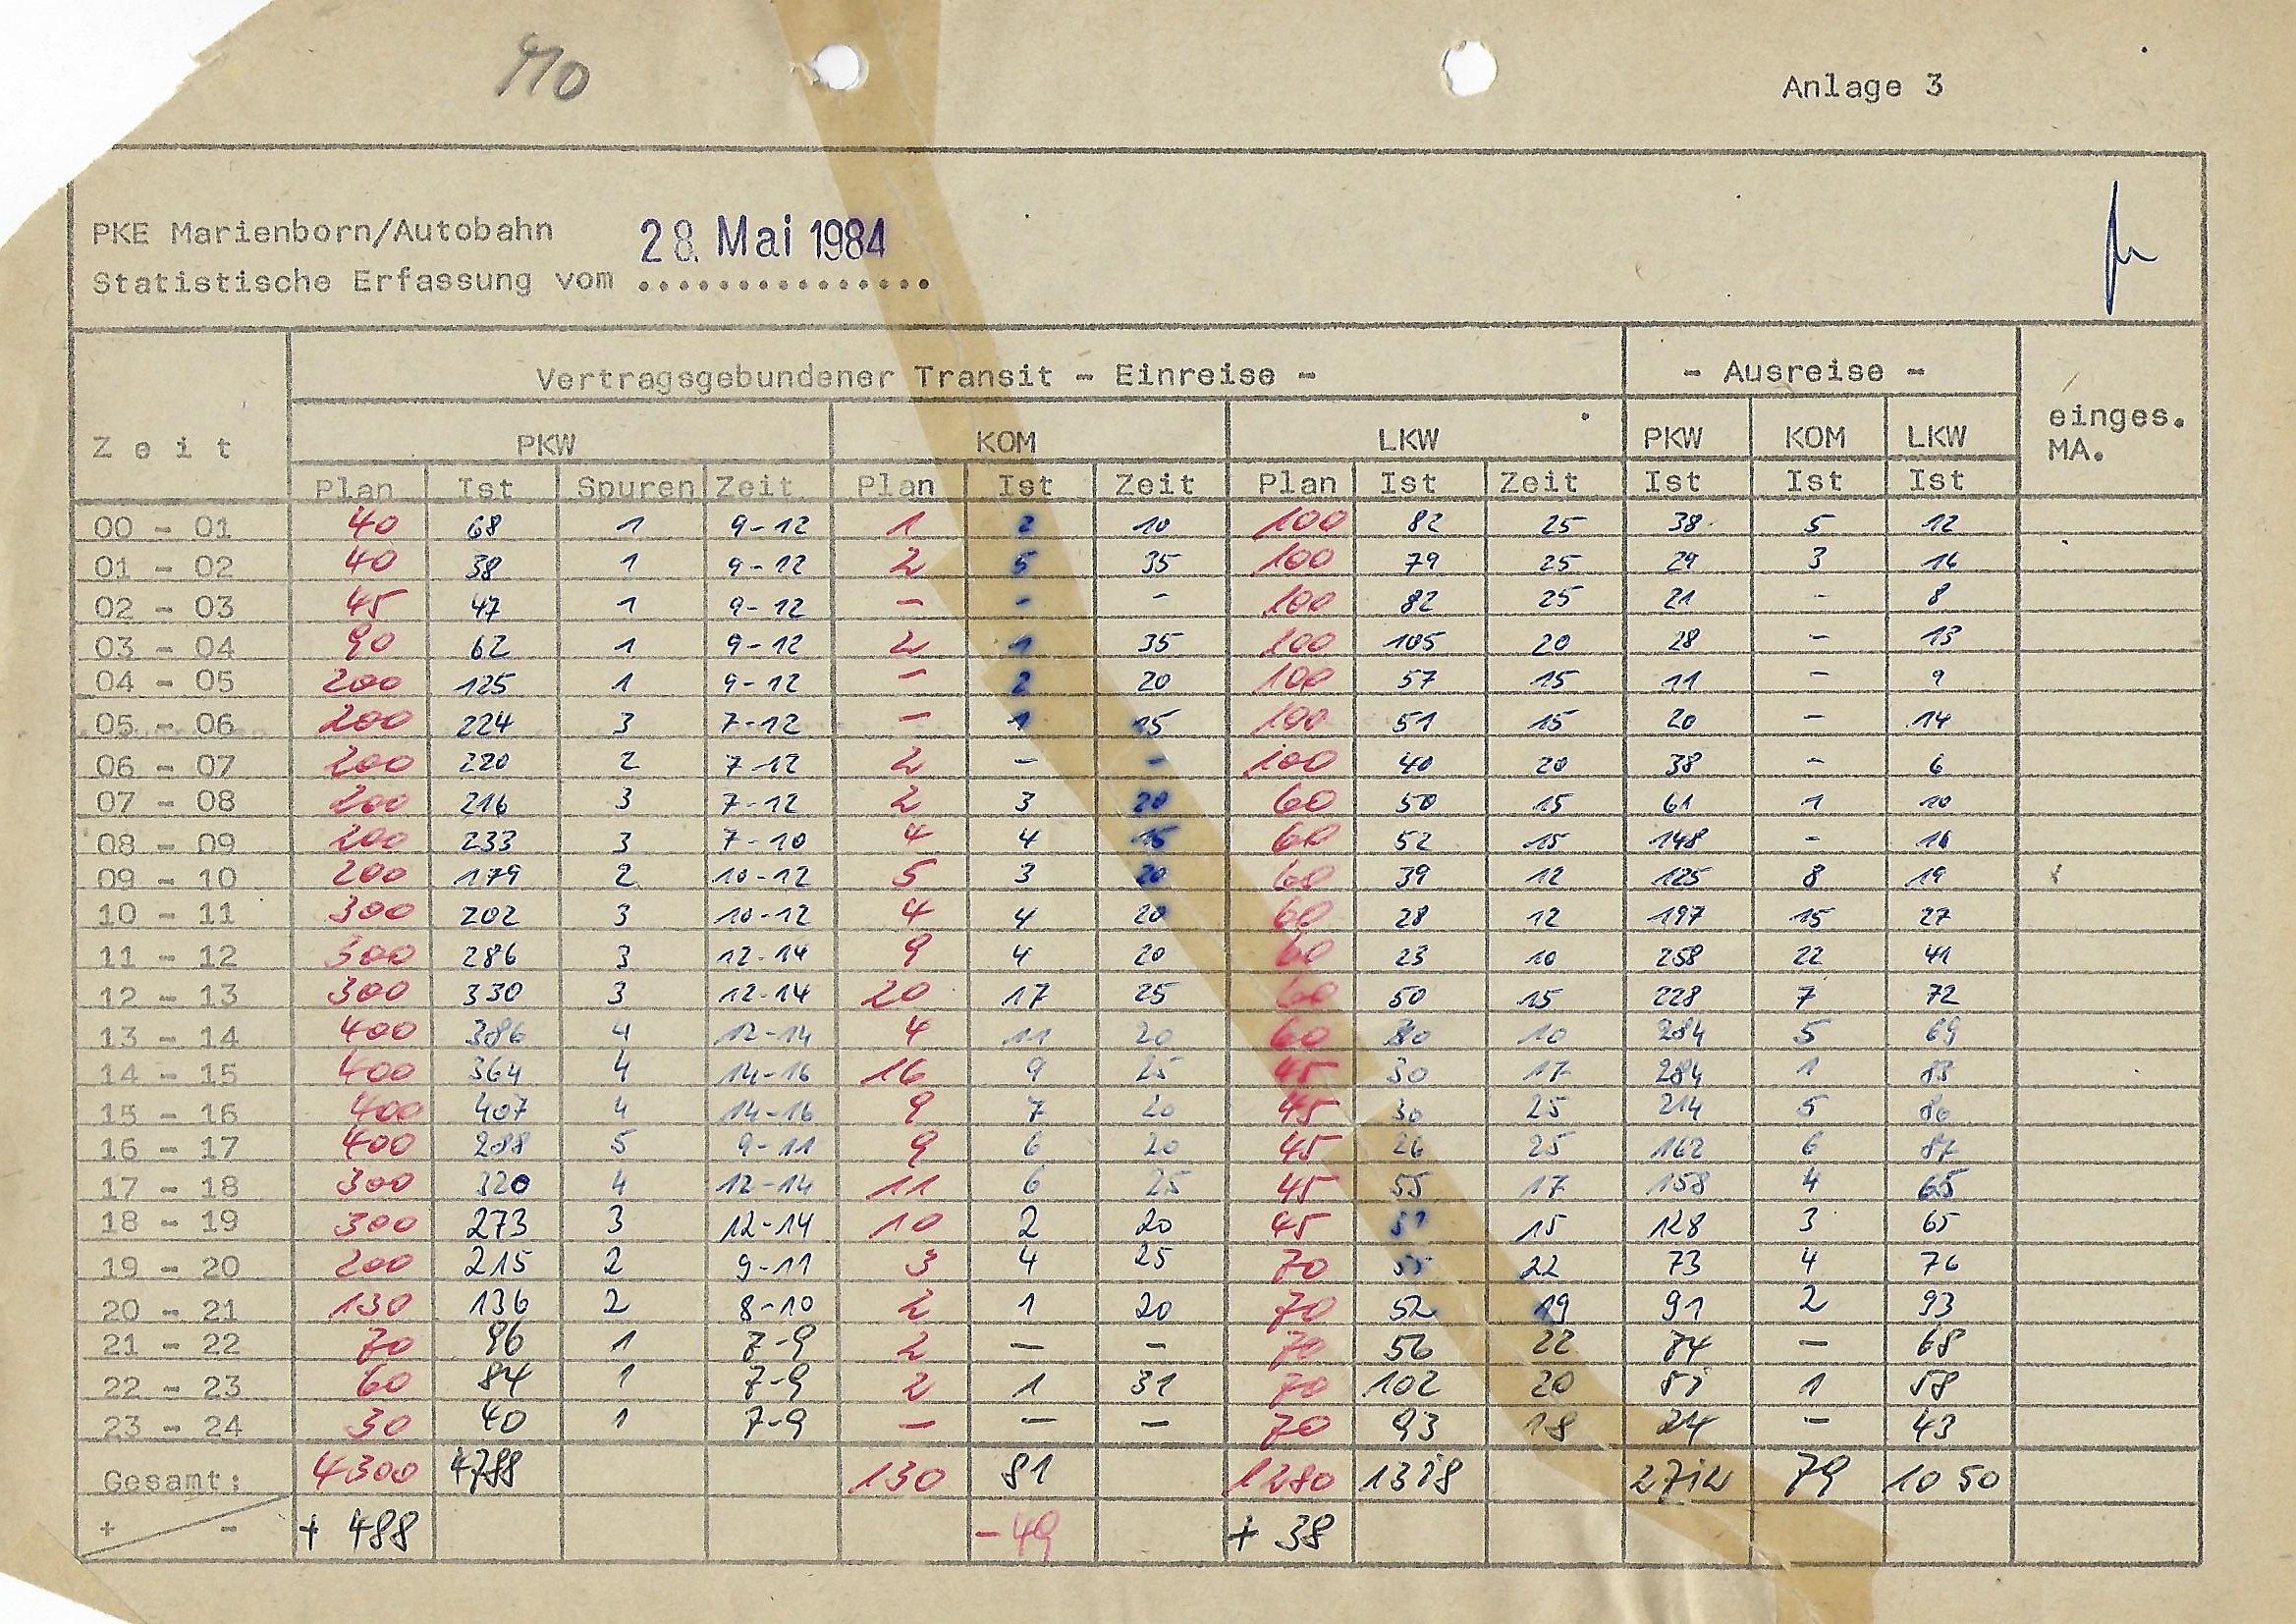 410
Anlage 3
PKE Marienborn/Autobahn 28. Mai 1984
Statistische Erfassung vom ...............
Vertragsgebundener Transit - Einreise - - Ausreise -
Zeit PKW KOM LKW PKW KOM LKW einges. MA.
Plan Ist Spuren Zeit Plan Ist Zeit Plan Ist Zeit Ist Ist Ist
00 - 01 40 68 1 9-12 1 2 10 100 82 25 38 5 12
01 - 02 40 38 1 9-12 2 5 35 100 79 25 29 3 14
02 - 03 45 47 1 9-12 - - - 100 82 25 21 - 8
03 - 04 90 62 1 9-12 2 1 35 100 105 20 28 - 13
04 - 05 200 125 1 9-12 - 2 20 100 57 15 11 - 9
05 - 06 200 224 3 7-12 - 1 15 100 51 15 20 - 14
06 - 07 200 220 2 7-12 2 - - 100 40 20 38 - 6
07 - 08 200 216 3 7-12 2 3 20 60 50 15 61 1 10
08 - 09 200 233 3 7-10 4 4 15 60 52 15 148 - 16
09 - 10 200 179 2 10-12 5 3 20 60 39 12 125 8 19
10 - 11 300 202 3 10-12 4 4 20 60 28 12 197 15 27
11 - 12 300 286 3 12-14 9 4 20 60 23 10 258 22 41
12 - 13 300 330 3 12-14 20 17 25 60 50 15 228 7 72
13 - 14 400 386 4 12-14 4 11 20 60 10 284 5 69
14 - 15 400 364 4 14-16 16 9 25 45 30 17 284 1 83
15 - 16 400 407 4 14-16 9 7 20 45 30 25 214 5 86
16 - 17 400 288 5 9-11 9 6 20 45 26 25 162 6 87
17 - 18 300 320 4 12-14 11 6 25 45 55 17 158 4 65
18 - 19 300 273 3 12-14 10 2 20 45 15 128 3 65
19 - 20 200 215 2 9-11 3 4 25 70 22 73 4 76
20 - 21 130 136 2 8-10 2 1 20 70 52 19 91 2 93
21 - 22 70 96 1 7-9 2 - - 70 56 22 74 - 68
22 - 23 60 84 1 7-9 2 1 31 70 102 20 1 58
23 - 24 30 40 1 7-9 - - - 70 93 18 24 - 43
Gesamt: 4300 4788 130 81 1280 1318 79 1050
+ - + 488 - 49 + 38